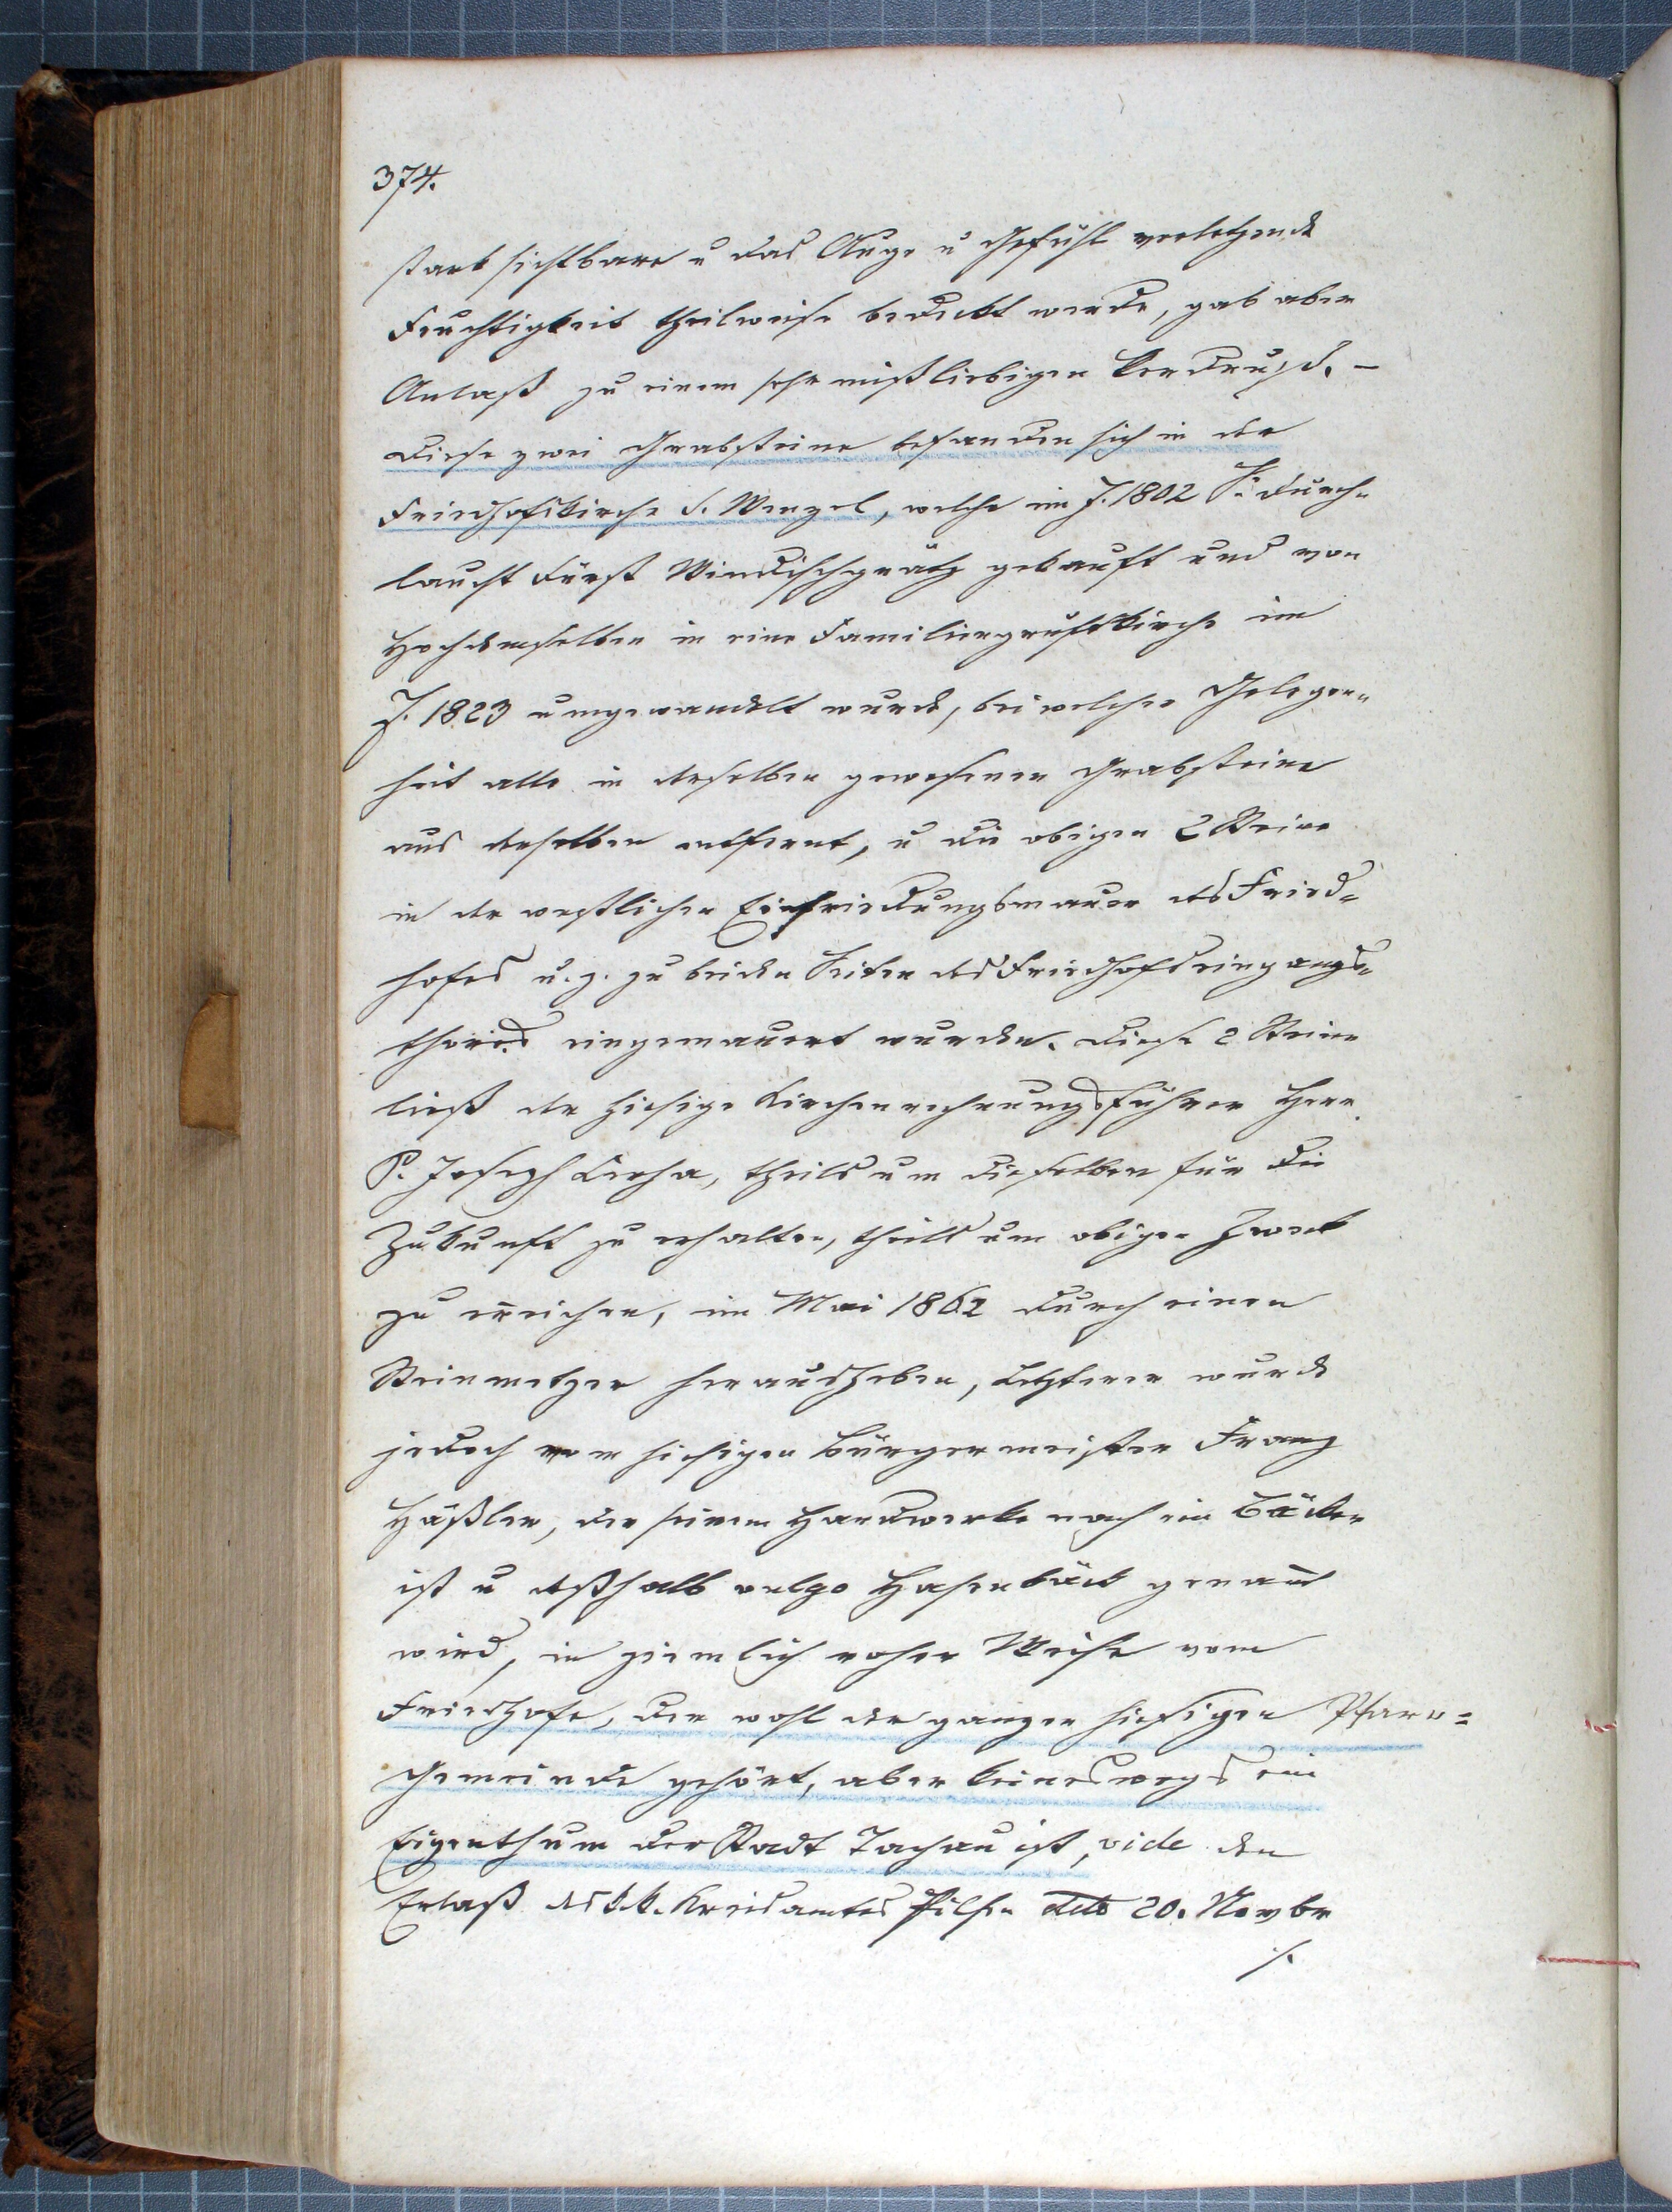 374.
stark sichtbare u das Auge u Gefühl verletzende
Feuchtigkeit theilweise bedeckt werde, gab aber
Anlaß zu einem sehr mißliebigen Verdruße. –
Diese zwei Grabsteine befanden sich in der
Friedhofskirche S. Wenzel, welche im J. 1802 Sr. Durch-
laucht Fürst Windischgrätz gekauft und von
Hochdemselben in eine Familiengruftkirche im
J. 1823 umgewandelt wurde, bei welcher Gelegen-
heit alle in derselben gewesenen Grabsteine
aus derselben entfernt, u die obigen 2 Steine
in der westlichen Einfriedungsmauer des Fried-
hofes u. z. zu beiden Seiten des Friedhofseingangs-
thores eingemauert wurden. Diese 2 Steine
ließ der hiesige Kirchenrechnungsführer Herr
P. Joseph theils um dieselben für die
Zukunft zu erhalten, theils um obigen Zweck
zu erreichen, im Mai 1862 durch einen
Steinmetzer herausheben, Letzterer wurde
jedoch vom hiesigen Bürgermeister Franz
Häßler, der seinem Handwerke nach ein Bäcker
ist u deßhalb vulgo Hasenbäck genañt
wird, in ziemlich roher Weise vom
Friedhofe, der wohl der ganzen hiesigen Pfarr-
Gemeinde gehört, aber keineswegs ein
Eigenthum der Stadt Tachau ist, vide den
Erlaß des k.k. Kreisamtes Pilsen ddto 20. Novbr
/.